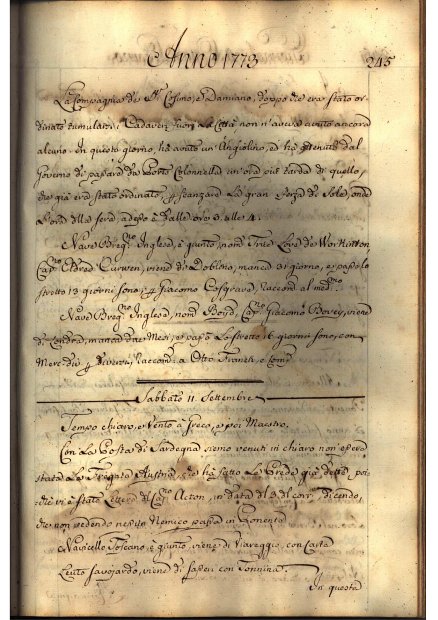 Anno 1773
245
La Compagnia di S. Cosimo, e Damiano, doppo che era stato or-
dinato tumulari i Cadaveri fuori la Città non n'aveva avuto ancora
alcuno. In questo giorno, ha avuto un'Angiolino, e ha ottenuto dal
Governo di passare da Porta Colonnella un'ora più tarda di quello,
che già era stato ordinato, p
la gran forza di Sole, onde
l'ora della sera, adesso è dalle ore 3. alle 4.
Nave Inglese, è giunto, nom True Love de
Cap.no Eldred Curwen, viene di Doblino, manca 31 giorno, e passò lo
stretto 13 giorni sono, p Giacomo Cosgrave, raccom. al med.mo
Nave Inglese, nom Boyd, Cap.no Giacomo Bovey, viene
di Londra, manca da 2 Mesi, e passò lo stretto 16 giorni sono, con
Mercanzie p diversi, raccom. a Otto Franck, e Comp.
Sabbato 11 Settembre
Tempo chiaro, e Vento a Greco, e poi Maestro.
Con la Posta di Sardegna siemo venuti in chiaro non essere
stata la Fregata Austria, che ha fatto le Prede già dette, poi-
che vi è stata Lettera di Cap.no Acton, in data del 3 del corr. dicendo,
che non vedendo nessun Nemico passa in Ponente
Navicello Toscano, è giunto, viene di Viareggio, con
Leuto Savojardo, viene di con Tonnina.
In questo